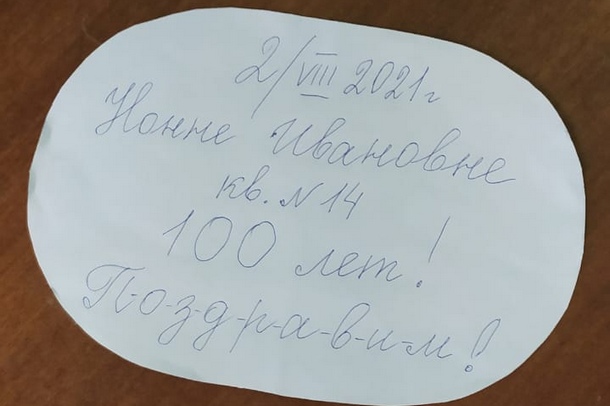 2/VIII 2021г
Нонне Ивановне
кв. N 14
100 лет!
П-о-з-д-р-а-в-и-м!